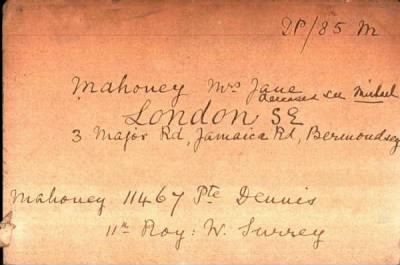 2P/85 M
Mahoney Mrs Jane
deceased see Michael
London SE
3 Major Rd, Jamaica Rd, Bermondsey
Mahoney 11467 Pte Dennis
11th Roy: W. Surrey